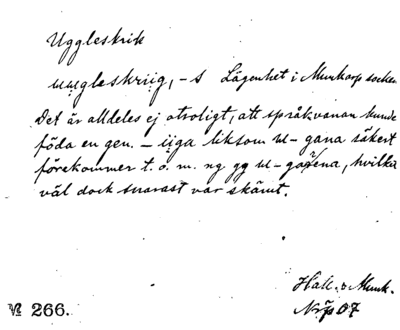 Uggleskrik
uuugleskriig, -s Lägenhet i Munkarp socken
Det är alldeles ej otroligt, att språkvanan kunde
föda en gen. - iiga liksom ul- gana säkert
förekommer t. o. m. ng gg ul- , hvilka
väl dock snarast var skämt.
Hall. o Munk.
07
№ 266.